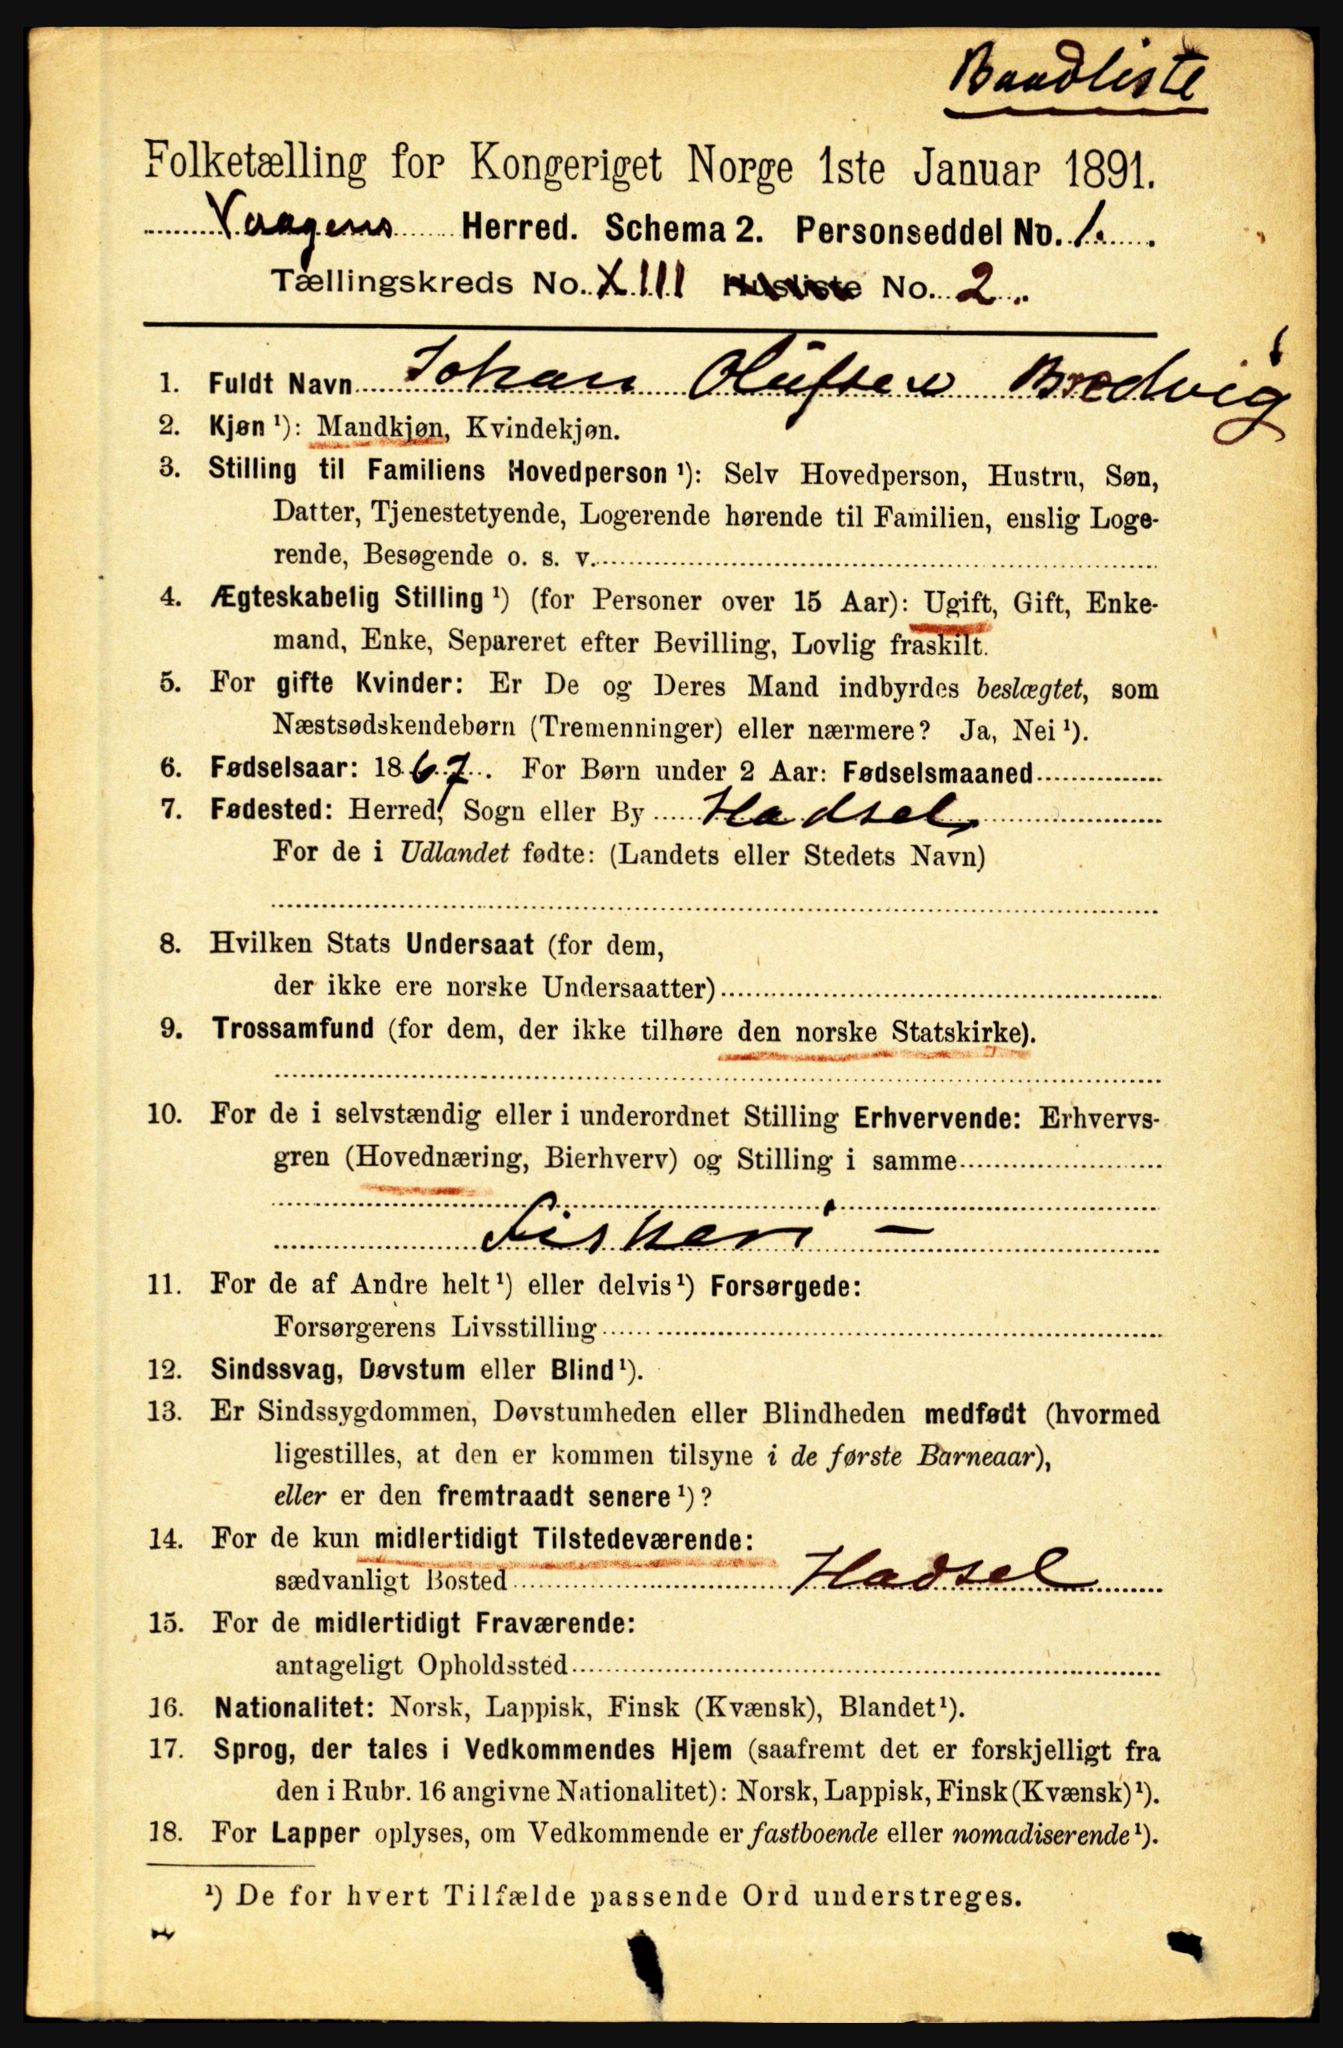 Baadliste
Folketælling for Kongeriget Norge 1ste Januar 1891.
Vaagens Herred. Schema 2. Personseddel No. 1.
Tællingskreds No. XIII Husliste No. 2.
1. Fuldt Navn Johan Olüfsen Bredvig
2. Kjøn ¹): Mandkjøn, Kvindekjøn.
3. Stilling til Familiens Hovedperson ¹): Selv Hovedperson, Hustru, Søn,
Datter, Tjenestetyende, Logerende hørende til Familien, enslig Loge-
rende, Besøgende o. s. v.
4. Ægteskabelig Stilling ¹) (for Personer over 15 Aar): Ugift, Gift, Enke-
mand, Enke, Separeret efter Bevilling, Lovlig fraskilt.
5. For gifte Kvinder: Er De og Deres Mand indbyrdes beslægtet, som
Næstsødskendebørn (Tremenninger) eller nærmere? Ja, Nei ¹).
6. Fødselsaar: 1867. For Børn under 2 Aar: Fødselsmaaned
7. Fødested: Herred, Sogn eller By Hadsel
For de i Udlandet fødte: (Landets eller Stedets Navn)
8. Hvilken Stats Undersaat (for dem,
der ikke ere norske Undersaatter)
9. Trossamfund (for dem, der ikke tilhøre den norske Statskirke).
10. For de i selvstændig eller i underordnet Stilling Erhvervende: Erhvervs-
gren (Hovednæring, Bierhverv) og Stilling i samme
Fiskeri —
11. For de af Andre helt ¹) eller delvis ¹) Forsørgede:
Forsørgerens Livsstilling
12. Sindssvag, Døvstum eller Blind ¹).
13. Er Sindssygdommen, Døvstumheden eller Blindheden medfødt (hvormed
ligestilles, at den er kommen tilsyne i de første Barneaar),
eller er den fremtraadt senere ¹)?
14. For de kun midlertidigt Tilstedeværende:
sædvanligt Bosted Hadsel
15. For de midlertidigt Fraværende:
antageligt Opholdssted
16. Nationalitet: Norsk, Lappisk, Finsk (Kvænsk), Blandet ¹).
17. Sprog, der tales i Vedkommendes Hjem (saafremt det er forskjelligt fra
den i Rubr. 16 angivne Nationalitet): Norsk, Lappisk, Finsk (Kvænsk) ¹).
18. For Lapper oplyses, om Vedkommende er fastboende eller nomadiserende ¹).
¹) De for hvert Tilfælde passende Ord understreges.